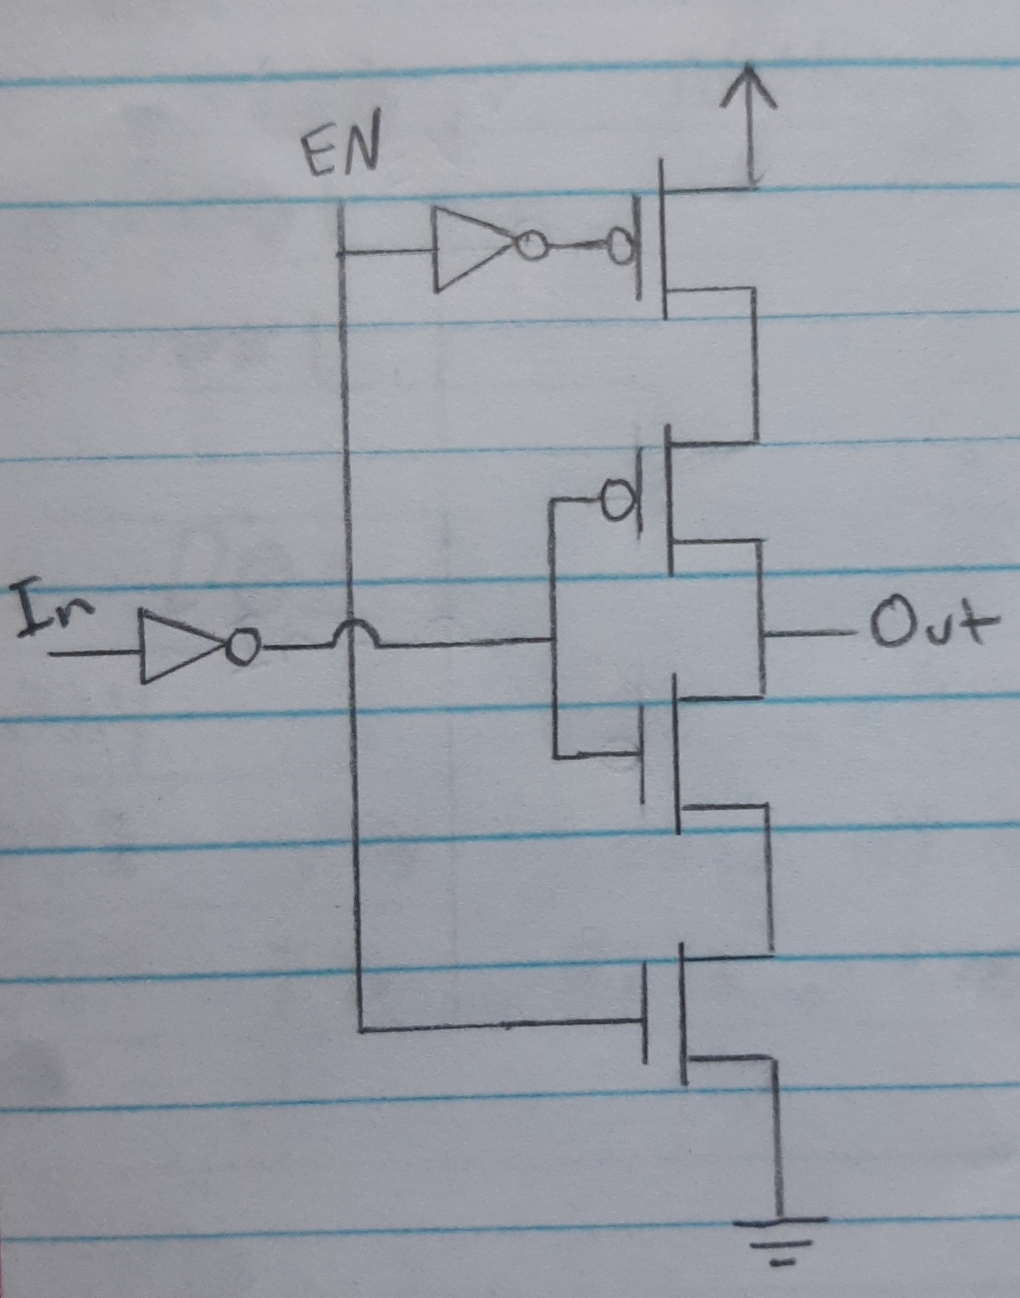 EN
In
Out